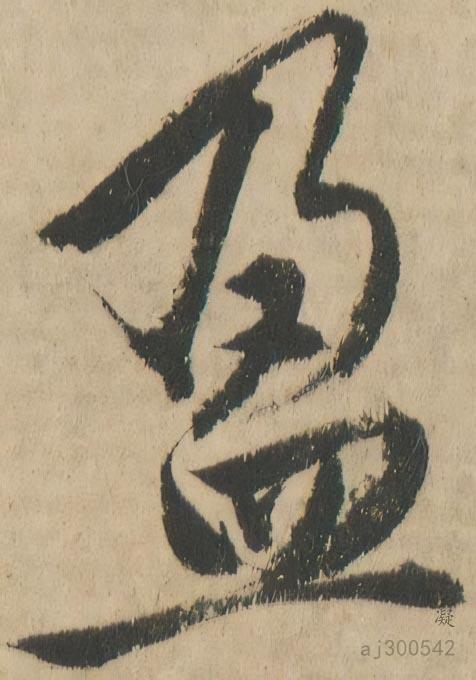 盈
凝
aj300542